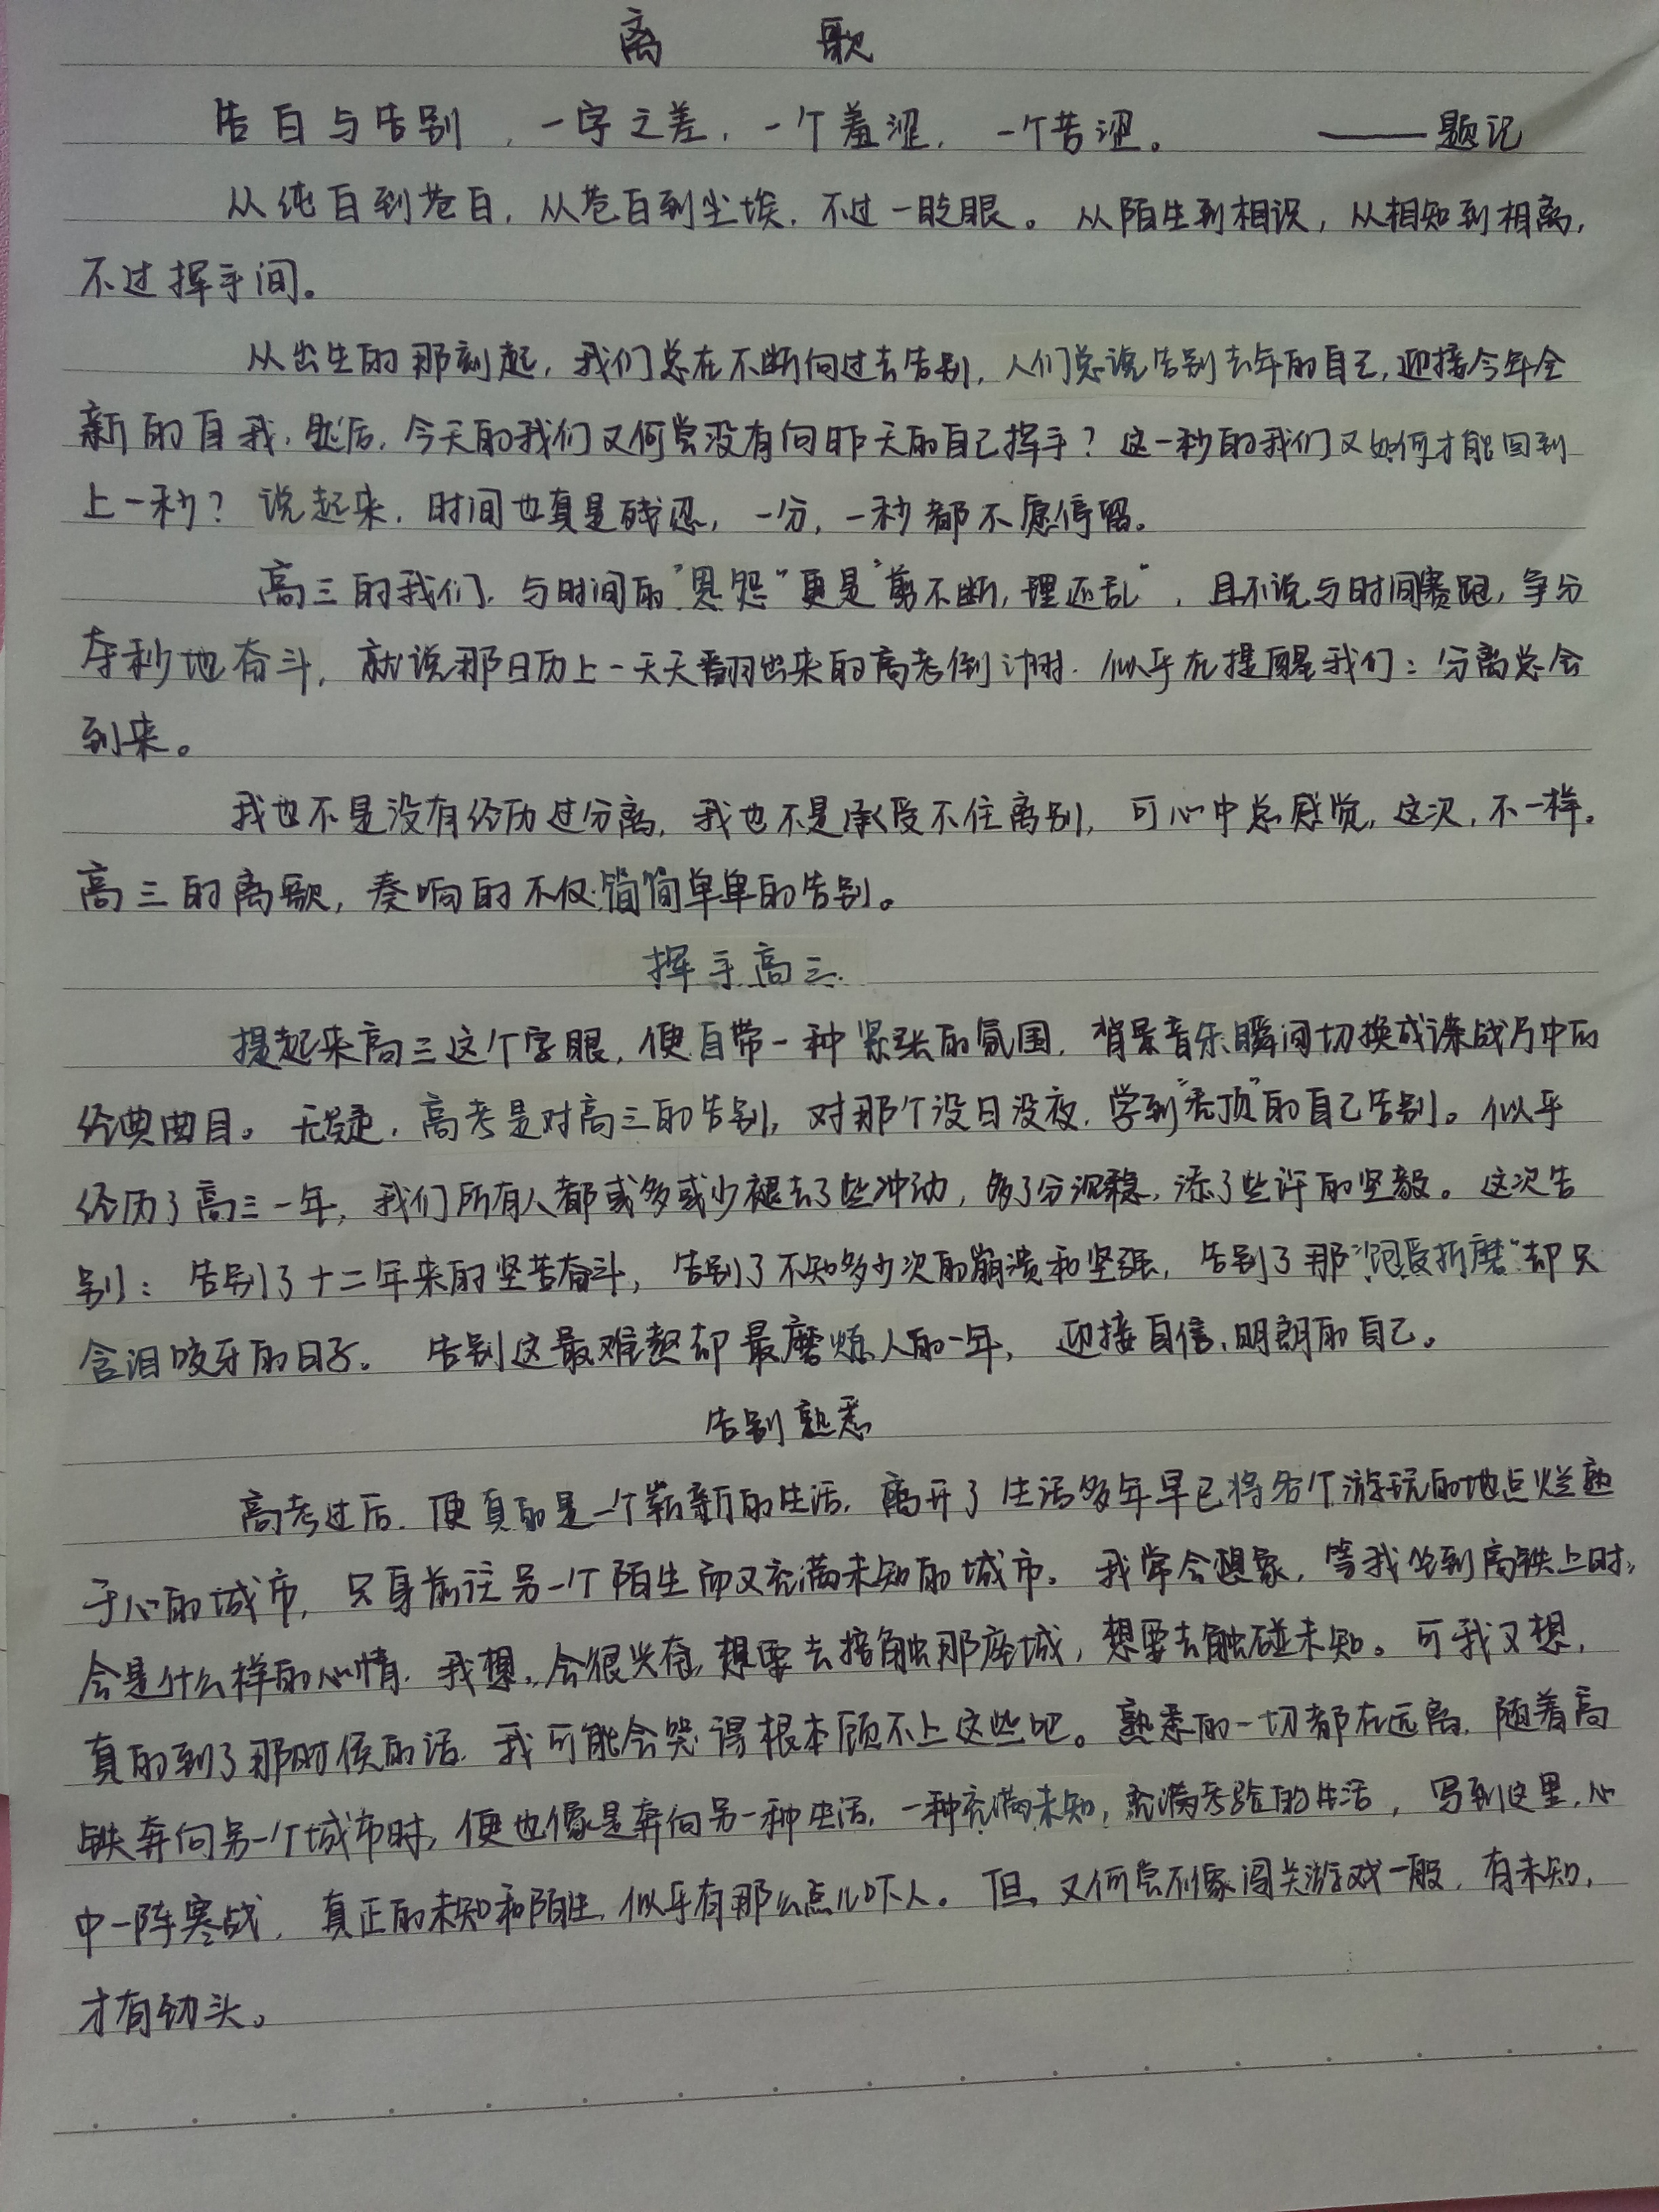 离 歌
告白与告别，一字之差，一个羞涩，一个苦涩。 ——题记
从纯白到苍白，从苍白到尘埃，不过一眨眼。从陌生到相识，从相知到相离，
不过挥手间。
从出生的那刻起，我们总在不断向过去告别，人们总说告别去年的自己，迎接今年全
新的自我，然后，今天的我们又何尝没有向昨天的自己挥手？这一秒的我们又如何才能回到
上一秒？说起来，时间也真是残忍，一分，一秒都不愿停留。
高三的我们，与时间的“恩怨”更是“剪不断，理还乱”，且不说与时间赛跑，争分
夺秒地奋斗，就说那日历上一天天翻出来的高考倒计时，似乎在提醒我们：分离总会
到来。
我也不是没有经历过分离，我也不是承受不住离别，可心中总感觉，这次，不一样。
高三的离歌，奏响的不仅简简单单的告别。
挥手高三
提起来高三这个字眼，便自带一种紧张的氛围，背景音乐瞬间切换成谍战片中的
经典曲目。无疑，高考是对高三的告别，对那个没日没夜，学到“秃顶”的自己告别。似乎
经历了高三一年，我们所有人都或多或少褪去了些冲动，多了分沉稳，添了些许的坚毅。这次告
别：告别了十二年来的坚苦奋斗，告别了不知多少次的崩溃和坚强，告别了那“饱受折磨”却只
含泪咬牙的日子。告别这最难熬却最磨炼人的一年，迎接自信、明朗的自己。
告别熟悉
高考过后，便真的是一个崭新的生活，离开了生活多年早已将各个游玩的地点烂熟
于心的城市，只身前往另一个陌生而又充满未知的城市。我常会想象，等我坐到高铁上时，
会是什么样的心情，我想，会很兴奋，想要去接触那座城，想要去触碰未知。可我又想，
真的到了那时候的话，我可能会哭得根本顾不上这些吧。熟悉的一切都在远离，随着高
铁奔向另一个城市时，便也像是奔向另一种生活，一种充满未知，充满考验的生活，写到这里，心
中一阵寒战，真正的未知和陌生，似乎有那么点儿吓人。但，又何尝不像闯关游戏一般，有未知，
才有劲头。